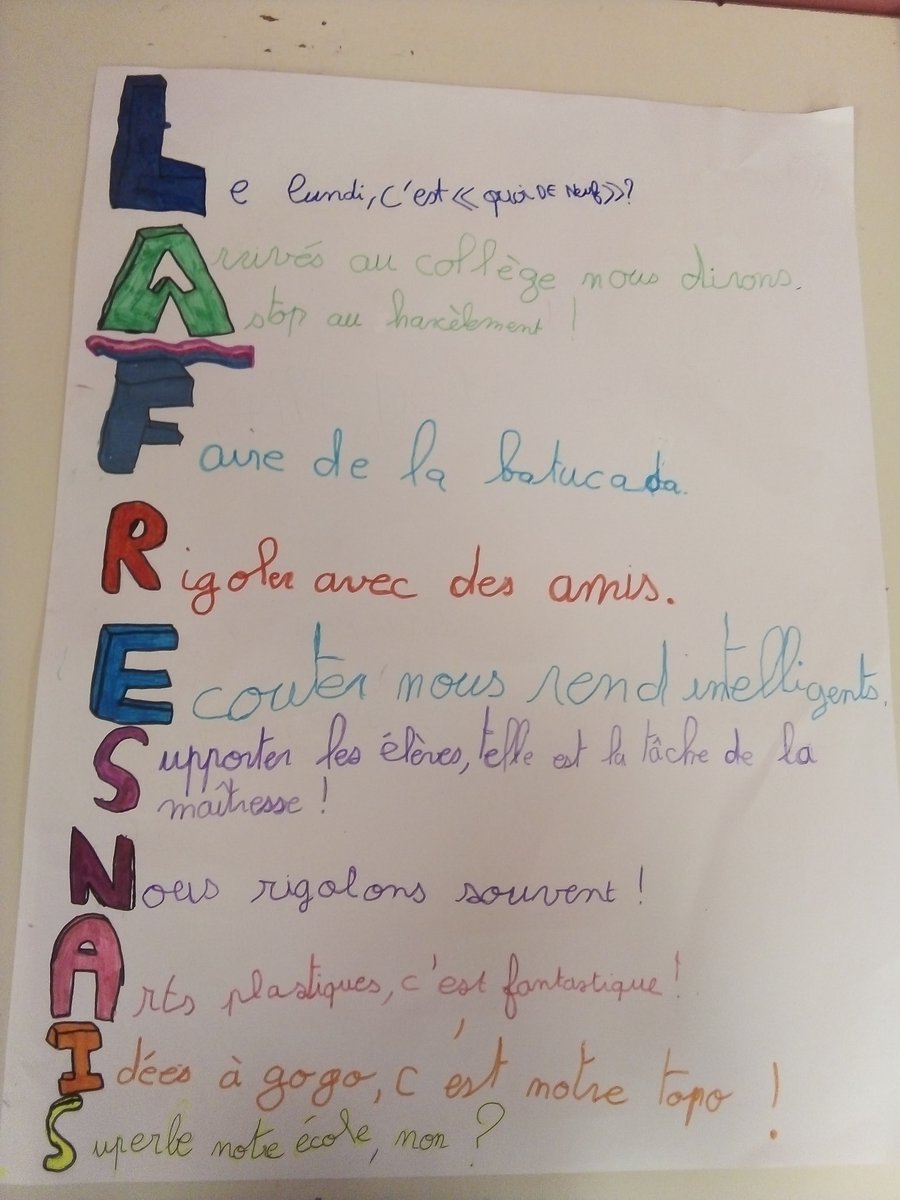 Le lundi, c'est << quoi DE Neuf >> ?
Arrivés au collège nous dirons.
stop au harcèlement !
Faire de la batucada.
Rigoler avec des amis.
Ecouter nous rend intelligents.
Supporter les élèves, telle est la tâche de la
maîtresse !
Nous rigolons souvent !
Arts plastiques, c'est fantastique !
Idées à gogo, c'est notre topo !
Superbe notre école, non ?